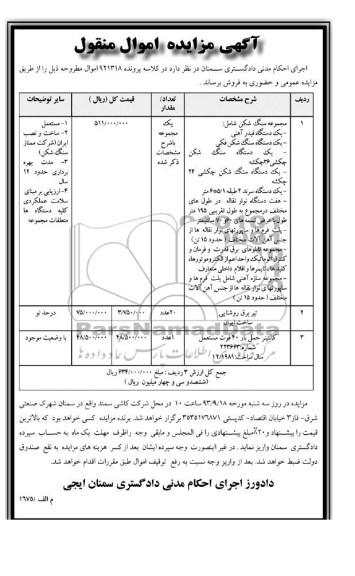 آگهی مزایده اموال منقول
اجرای احکام مدنی دادگستری سمنان در نظر دارد در کلاسه پرونده ۹۲۱۳۱۸ اموال مطروحه ذیل را از طریق
مزایده عمومی و حضوری به فروش برساند.
ردیف شرح مشخصات تعداد/مقدار قیمت کل (ریال) سایر توضیحات
۱
مجموعه سنگ شکن شامل:
- یک دستگاه فیدر آهنی
- یک دستگاه سنگ شکن فکی
- یک دستگاه سنگ شکن
چکشی ۳۶ چکشه
- یک دستگاه سنگ شکن چکشی ۲۴
چکشه
- یک دستگاه سرند ۲ طبقه ۱/۵*۶ متر
- هفت دستگاه نوار نقاله در طول های
مختلف درمجموع به طول تقریبی ۱۹۵ متر
جنس آهن آلات مختلف (حدود ۱۵ تن)
- مجموعه تابلوهای برق قدرت و فرمان و
کلیدها، تایمرها و اقلام داخلی متعارف
- مجموعه سازه آهنی شامل پلت فرم ها و
ساپورتهای نوار نقاله ها از جنس آهن آلات
مختلف (حدود ۱۵ تن)
یک
مجموعه
باشرح
مشخصات
ذکر شده
۵۱۱/۰۰۰/۰۰۰
۱- مستعمل
۲- ساخت و نصب
ایران (شرکت ممتاز
سنگ شکن)
۳- مدت بهره
برداری حدود ۱۲
سال
۴- ارزیابی بر مبنای
سلامت عملکردی
کلیه دستگاه ها
متعلقات مجموعه
۲ تیر برق روشنایی ۲۰عدد ۳/۷۵۰/۰۰۰ ۷۵/۰۰۰/۰۰۰ درحد نو
ساخت ایران
۳ کانتینر حمل بار ۴۰ فوت مستعمل ۱عدد ۴۸/۵۰۰/۰۰۰ ۴۸/۵۰۰/۰۰۰ با وضعیت موجود
شماره ۲۲۳۶۶۳
سال ساخت: ۱۲/۱۹۸۱
جمع کل ارزش ۳ ردیف: مبلغ ۶۳۴/۰۰۰/۰۰۰ ریال
(ششصدو سی و چهار میلیون ریال)
ParsNamadData
پایگاه اطلاع رسانی پارس نماد داده ها
مزایده در روز سه شنبه مورخه ۹۳/۹/۱۸ ساعت ۱۰ در محل شرکت کاشی سمند واقع در سمنان شهرک صنعتی
شرق- فاز۳ خیابان اقتصاد- کدپستی ۳۵۳۵۱۷۶۱۸۷۱ برگزار خواهد شد. برنده مزایده کسی خواهد بود که بالاترین
قیمت را پیشنهاد و ۲۰٪ مبلغ پیشنهادی را فی المجلس و مابقی وجه راظرف مهلت یک ماه به حساب سپرده
دادگستری سمنان واریز نماید. در غیر اینصورت وجه سپرده ایشان بعد از کسر هزینه های مزایده به نفع صندوق
دولت ضبط خواهد شد. بعد از واریز وجه نسبت به رفع توقیف اموال طبق مقررات اقدام خواهد شد.
دادورز اجرای احکام مدنی دادگستری سمنان ایجی
م الف /۱۶۷۵